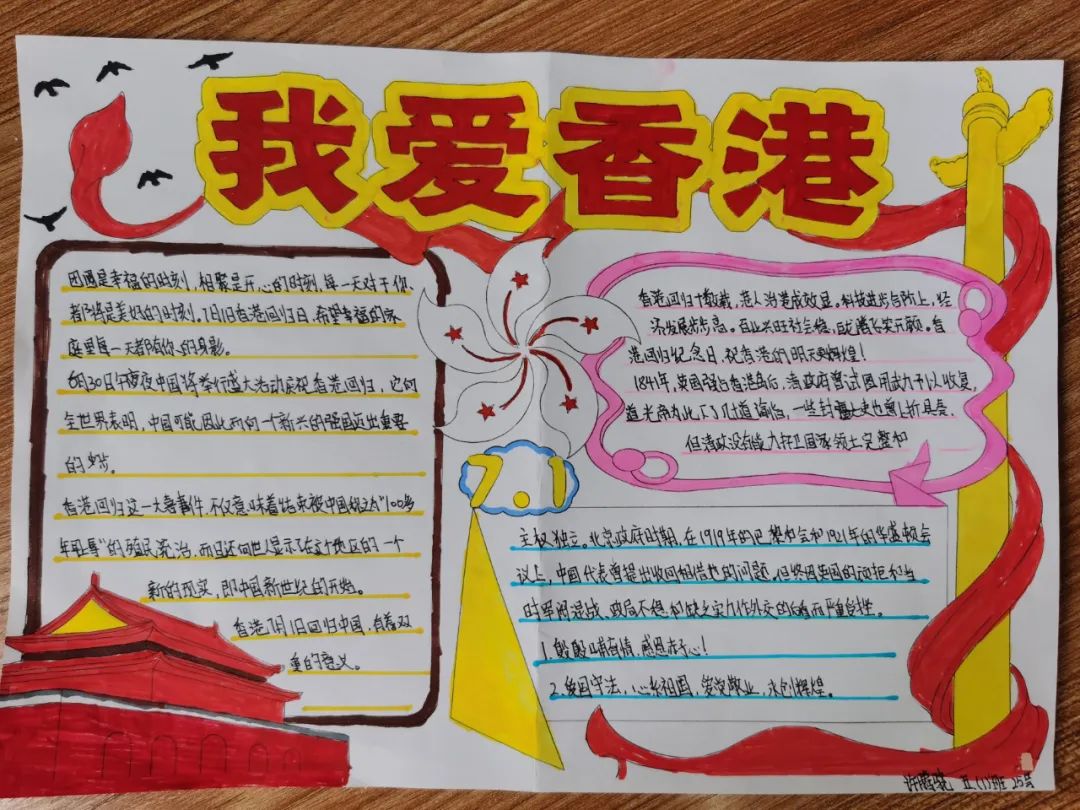 我爱香港
团圆是幸福的时刻,相聚是开心的时刻,每一天对于你、
都将是美好的时刻,7月1日香港回归日,希望幸福的家
庭里每一天都有你的身影。
6月30日午夜中国将举行盛大活动庆祝香港回归,它向
全世界表明,中国可能因此而向一个新兴的强国迈出重要
的步。
香港回归这一大喜事件,不仅意味着结束被中国称之为"100多
年耻辱"的殖民统治,而且还向世人显示了在这个地区的一个
新的现实,即中国新世纪的开始。
香港7月1日回归中国,有着双
重的意义。
7.1
香港回归十数载,港人治港成效显。科技进步与际上,经
济发展步步高。百业兴旺社会稳,国腾飞实示额。香
港回归纪念日,祝香港的明天更辉煌!
1841年,英国强占香港岛后,清政府尝试图用武力予以收复,
道光帝为此下了几道谕旨,一些封疆大吏也曾上折具奏,
但清政没有能力捍卫国家领土完整和
主权独立。北京政府时期,在1919年的巴黎和会和1921年的华盛顿会
议上,中国代表曾提出收回租借地的问题。但终因英国的顽拒和当
时军阀混战、政局不稳和缺乏实力作外交的后盾而严重夭性。
1.殷殷哺育情,感恩在于心!
2.爱国守法,心系祖国,爱岗敬业,永创辉煌。
五(1)班 25号